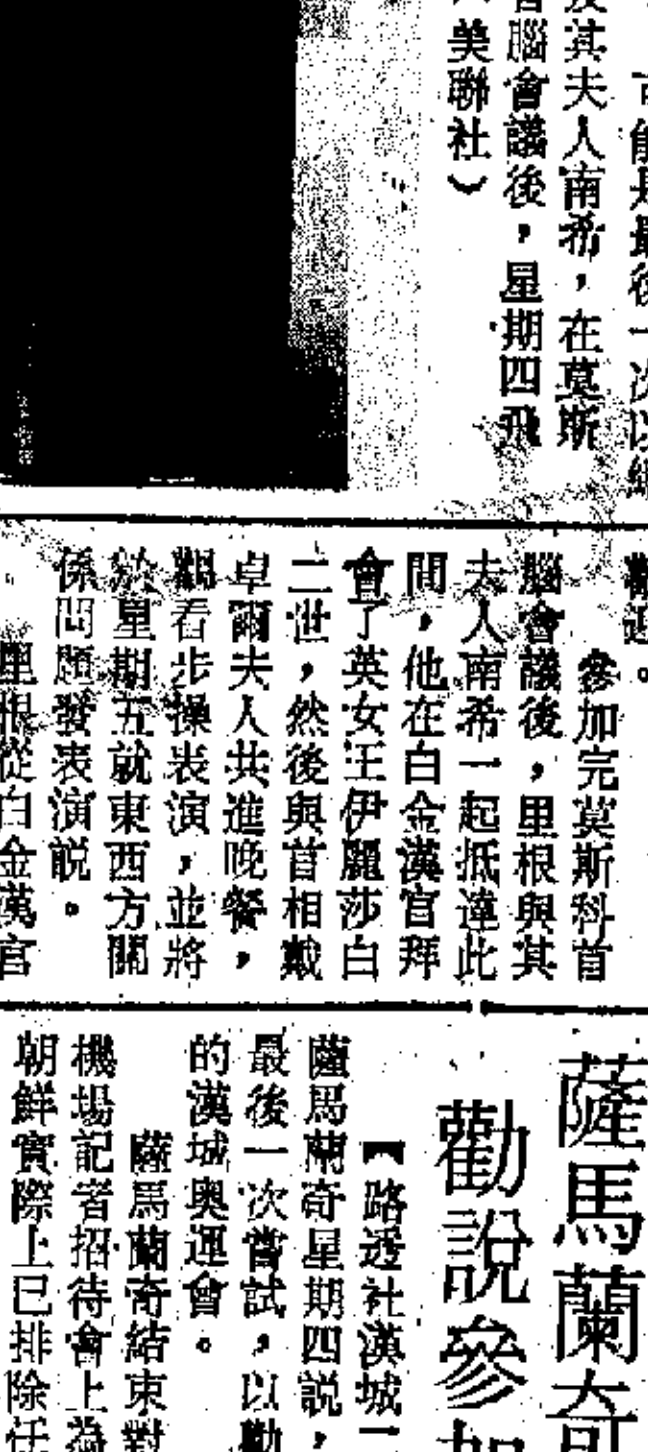 可能是最後一次以總
及其夫人南希，在莫斯
腦會議後，星期四飛
美聯社）
歡迎。
參加完莫斯科首
腦會議後，里根與其
夫人南希一起抵達此
間，他在白金漢宮拜
會了英女王伊麗莎白
二世，然後與首相戴
卓爾夫人共進晚餐，
觀看步操表演，並將
於星期五就東西方關
係問題發表演説。
里根從白金漢宮
薩馬蘭奇
勸説參加
【路透社漢城一
薩馬蘭奇星期四説，
最後一次嘗試，以勸
的漢城奧運會。
薩馬蘭奇結束對
機場記者招待會上為
朝鮮實際上已排除任